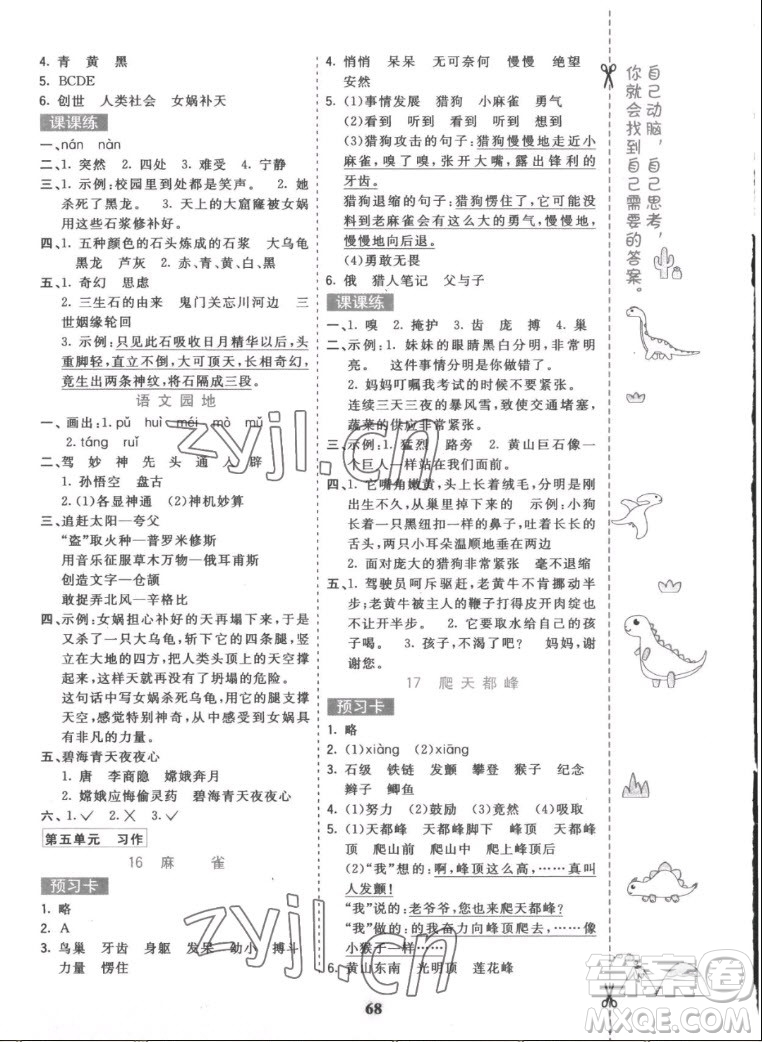 4. 青 黄 黑
5. BCDE
6. 创世 人类社会 女娲补天
课课练
一、nán nàn
二、1. 突然 2. 四处 3. 难受 4. 宁静
三、1. 示例:校园里到处都是笑声。 2. 她
杀死了黑龙。 3. 天上的大窟窿被女娲
用这些石浆修补好。
四、1. 五种颜色的石头炼成的石浆 大乌龟
黑龙 芦灰 2. 赤、青、黄、白、黑
五、1. 奇幻 思虑
2. 三生石的由来 鬼门关忘川河边 三
世姻缘轮回
3. 示例:只见此石吸收日月精华以后,头
重脚轻,直长得大可顶天,长相奇幻,
竟生出两条神纹,将石隔成三段。
语文园地
一、画出:1. pǔ huì méi mò mǔ
2. táng ruǐ
二、驾 妙 神 先 头 通 人 辟
1. 孙悟空 盘古
2. (1)各显神通 (2)神机妙算
三、追赶太阳—夸父
“盗”取火种—普罗米修斯
用音乐征服草木万物—俄耳甫斯
创造文字—仓颉
敢捉弄北风—辛格比
四、示例:女娲担心补好的天再塌下来,于是
又杀了一只大乌龟,斩下它的四条腿,
当作四根大柱子,把天撑起来。
这样,人类头顶上的天空撑得高
高的,再也没有了坍塌的危险。
这句话中写女娲杀死乌龟,用它的腿支撑
天空,感觉特别神奇,突出了女娲具有
非凡的力量。
五、碧海青天夜夜心
1. 唐 李商隐 嫦娥奔月
2. 嫦娥应悔偷灵药 碧海青天夜夜心
六、1.✓ 2.✗ 3.✓
第五单元 习作
16 麻雀
预习卡
1. 略
2. A
3. 鸟巢 牙齿 身躯 发呆 幼小 搏斗
力量 愣住
4. 悄悄 呆呆 无可奈何 慢慢 绝望
安然
5. (1)事情发展 猎狗 小麻雀 勇气
(2)看到 听到 看到 听到 想到
(3)猎狗攻击的句子:猎狗慢慢地走近小
麻雀,嗅了嗅,张开大嘴,露出锋利的
牙齿。
猎狗退缩的句子:猎狗愣住了,它可能没
料到老麻雀会有这么大的勇气,慢慢地,
慢慢地向后退。
(4)勇敢无畏
6. 俄 猎人笔记 父与子
课课练
一、1. 嗅 2. 掩护 3. 齿 庞 搏 4. 巢
二、示例:1. 妹妹的眼睛黑白分明,非常明
亮。 这件事情分明是你做错了。
2. 妈妈叮嘱我考试的时候不要紧张。
连续三天三夜的暴风雪,致使交通堵塞,
蔬菜的供应非常紧张。
三、示例:1. 猛烈 路旁 2. 黄山巨石像一
个巨人一样站在我们面前。
四、1. 它嘴角嫩黄,头上长着绒毛,分明是
刚出生不久,从巢里掉下来的 示例:小狗
长着一个黑纽扣一样的鼻子,吐着长长的
舌头,两只小耳朵温顺地垂在两边
2. 面对庞大的猎狗非常紧张 毫不退缩
五、1. 驾驶员呵斥驱赶,老黄牛不肯挪动半
步;老黄牛被主人的鞭子打得皮开肉绽也
不让开半步。 2. 它要水给自己的孩子
喝。 3. 孩子,不渴了吧? 妈妈,谢
谢您。
17 爬天都峰
预习卡
1. 略
2. (1)xiàng (2)xiāng
3. 石级 铁链 发颤 攀登 猴子 纪念
辫子 鲫鱼
4. (1)努力 (2)鼓励 (3)竟然 (4)吸取
5. (1)天都峰 天都峰脚下 天都峰顶
爬山前 爬山中 爬上峰顶后
(2)“我”想的:啊,峰顶这么高,……真叫
人发颤!
“我”说的:老爷爷,您也来爬天都峰?
“我”做的:的我奋力向峰顶爬去,……像
小猴子一样……
6. 黄山东南 光明顶 莲花峰
自己动脑,自己思考,
你就会找到自己需要的答案。
68
zyjl.cn
zyjl.cn
答案圈
MXQE.COM